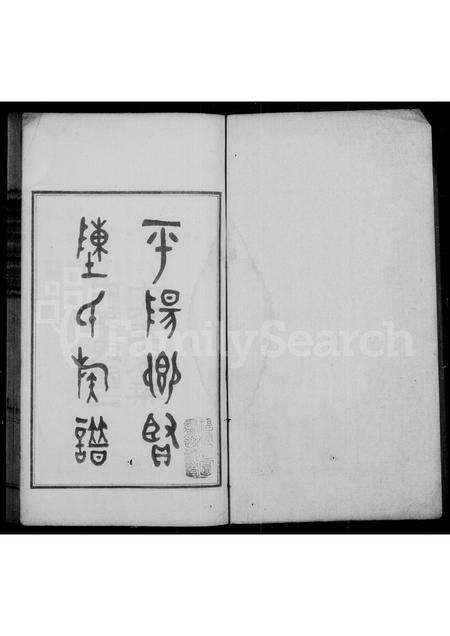 平陽鄉賢
陳氏 譜
FamilySearch